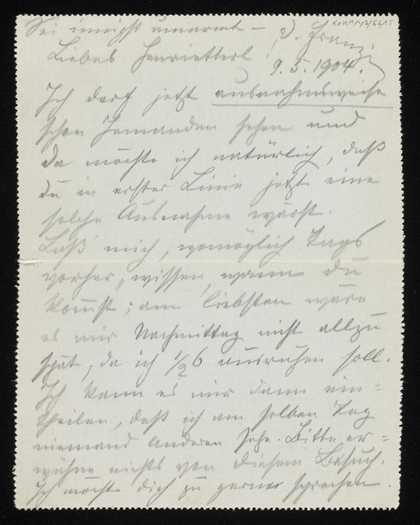 Sei innigst umarmt – D. Franz.
Liebes Henrietterl! 9.5.1904.
Ich darf jetzt ausnahmsweise
schon Jemanden sehen und
da möchte ich natürlich, daß
Du in erster Linie jetzt eine
solche Ausnahme wärst.
Laß mich, womöglich Tags
vorher, wissen, wann Du
kommst; am liebsten wäre
es mir Nachmittag nicht allzu
spät, da ich ½6 ausruhen soll.
Ich kann es mir dann ein=
theilen, daß ich am selben Tag
niemand Anderen sehe. Bitte er=
wähne nichts von diesem Besuch.
Ich möchte Dich zu gerne sprechen.